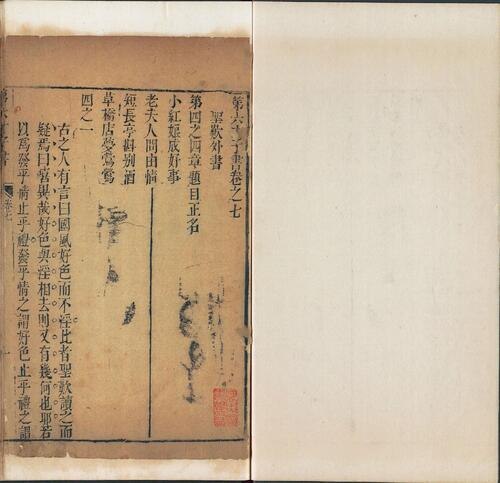 第六才子書卷之七
聖歎外書
第四之四章題目正名
小紅娘成好事
老夫人問由情
短長亭斟别酒
草橋店夢鶯鶯
四之一
古之人有言曰國風好色而不淫比者聖歎讀之而
疑焉曰嘻異哉好色與淫相去則又有幾何也耶若
以爲發乎情止乎禮發乎情之謂好色止乎禮之謂